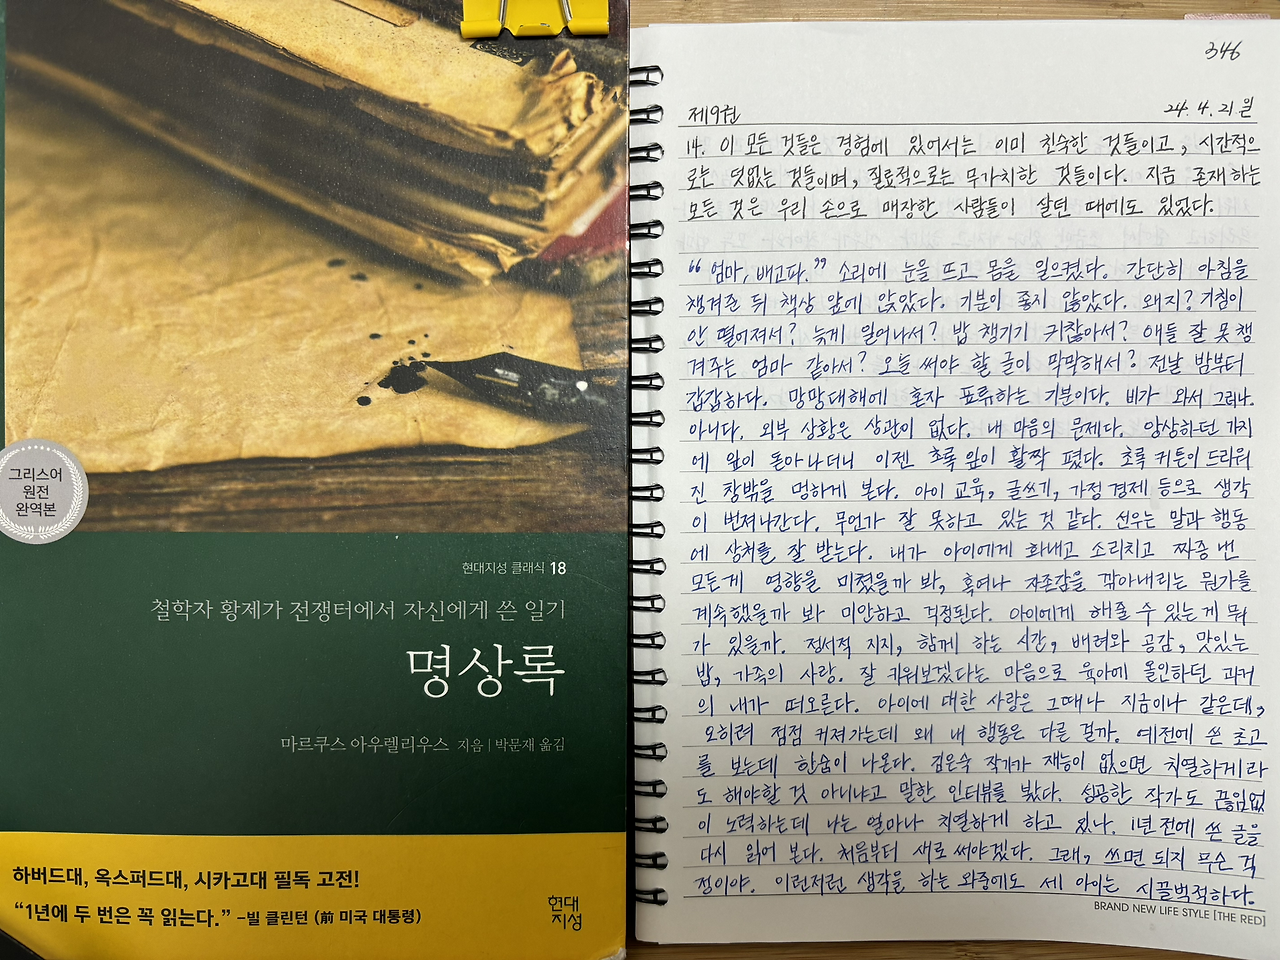 그리스어
원전
완역본
현대지성 클래식 18
철학자 황제가 전쟁터에서 자신에게 쓴 일기
명상록
마르쿠스 아우렐리우스 지음 | 박문재 옮김
하버드대, 옥스퍼드대, 시카고대 필독 고전!
“1년에 두 번은 꼭 읽는다.” –빌 클린턴 (前 미국 대통령)
현대
지성
346
제9권 24. 4. 21 일
14. 이 모든 것들은 경험에 있어서는 이미 친숙한 것들이고, 시간적으
로는 덧없는 것들이며, 질료적으로는 무가치한 것들이다. 지금 존재하는
모든 것은 우리 손으로 매장한 사람들이 살던 때에도 있었다.
“엄마, 배고파.” 소리에 눈을 뜨고 몸을 일으켰다. 간단히 아침을
챙겨준 뒤 책상 앞에 앉았다. 기분이 좋지 않았다. 왜지? 기침이
안 떨어져서? 늦게 일어나서? 밥 챙기기 귀찮아서? 애들 잘 못 챙
겨주는 엄마 같아서? 오늘 써야 할 글이 막막해서? 전날 밤부터
갑갑하다. 망망대해에 혼자 표류하는 기분이다. 비가 와서 그러나.
아니다. 외부 상황은 상관이 없다. 내 마음의 문제다. 앙상하던 가지
에 잎이 돋아나더니 이젠 초록 잎이 활짝 폈다. 초록 커튼이 드리워
진 창밖을 멍하게 본다. 아이 교육, 글쓰기, 가정 경제 등으로 생각
이 번져나간다. 무언가 잘 못하고 있는 것 같다. 선우는 말과 행동
에 상처를 잘 받는다. 내가 아이에게 화내고 소리치고 짜증 낸
모든게 영향을 미쳤을까 봐, 혹여나 자존감을 깎아내리는 뭔가를
계속했을까 봐 미안하고 걱정된다. 아이에게 해줄 수 있는 게 뭐
가 있을까. 정서적 지지, 함께 하는 시간, 배려와 공감, 맛있는
밥, 가족의 사랑. 잘 키워보겠다는 마음으로 육아에 올인하던 과거
의 내가 떠오른다. 아이에 대한 사랑은 그때나 지금이나 같은데,
오히려 점점 커져가는데 왜 내 행동은 다른 걸까. 예전에 쓴 초고
를 보는데 한숨이 나온다. 김은숙 작가가 재능이 없으면 치열하게라
도 해야할 것 아니냐고 말한 인터뷰를 봤다. 성공한 작가도 끊임없
이 노력하는데 나는 얼마나 치열하게 하고 있나. 1년 전에 쓴 글을
다시 읽어 본다. 처음부터 새로 써야겠다. 그래, 쓰면 되지 무슨 걱
정이야. 이런저런 생각을 하는 와중에도 세 아이는 시끌벅적하다.
BRAND NEW LIFE STYLE [THE RED]